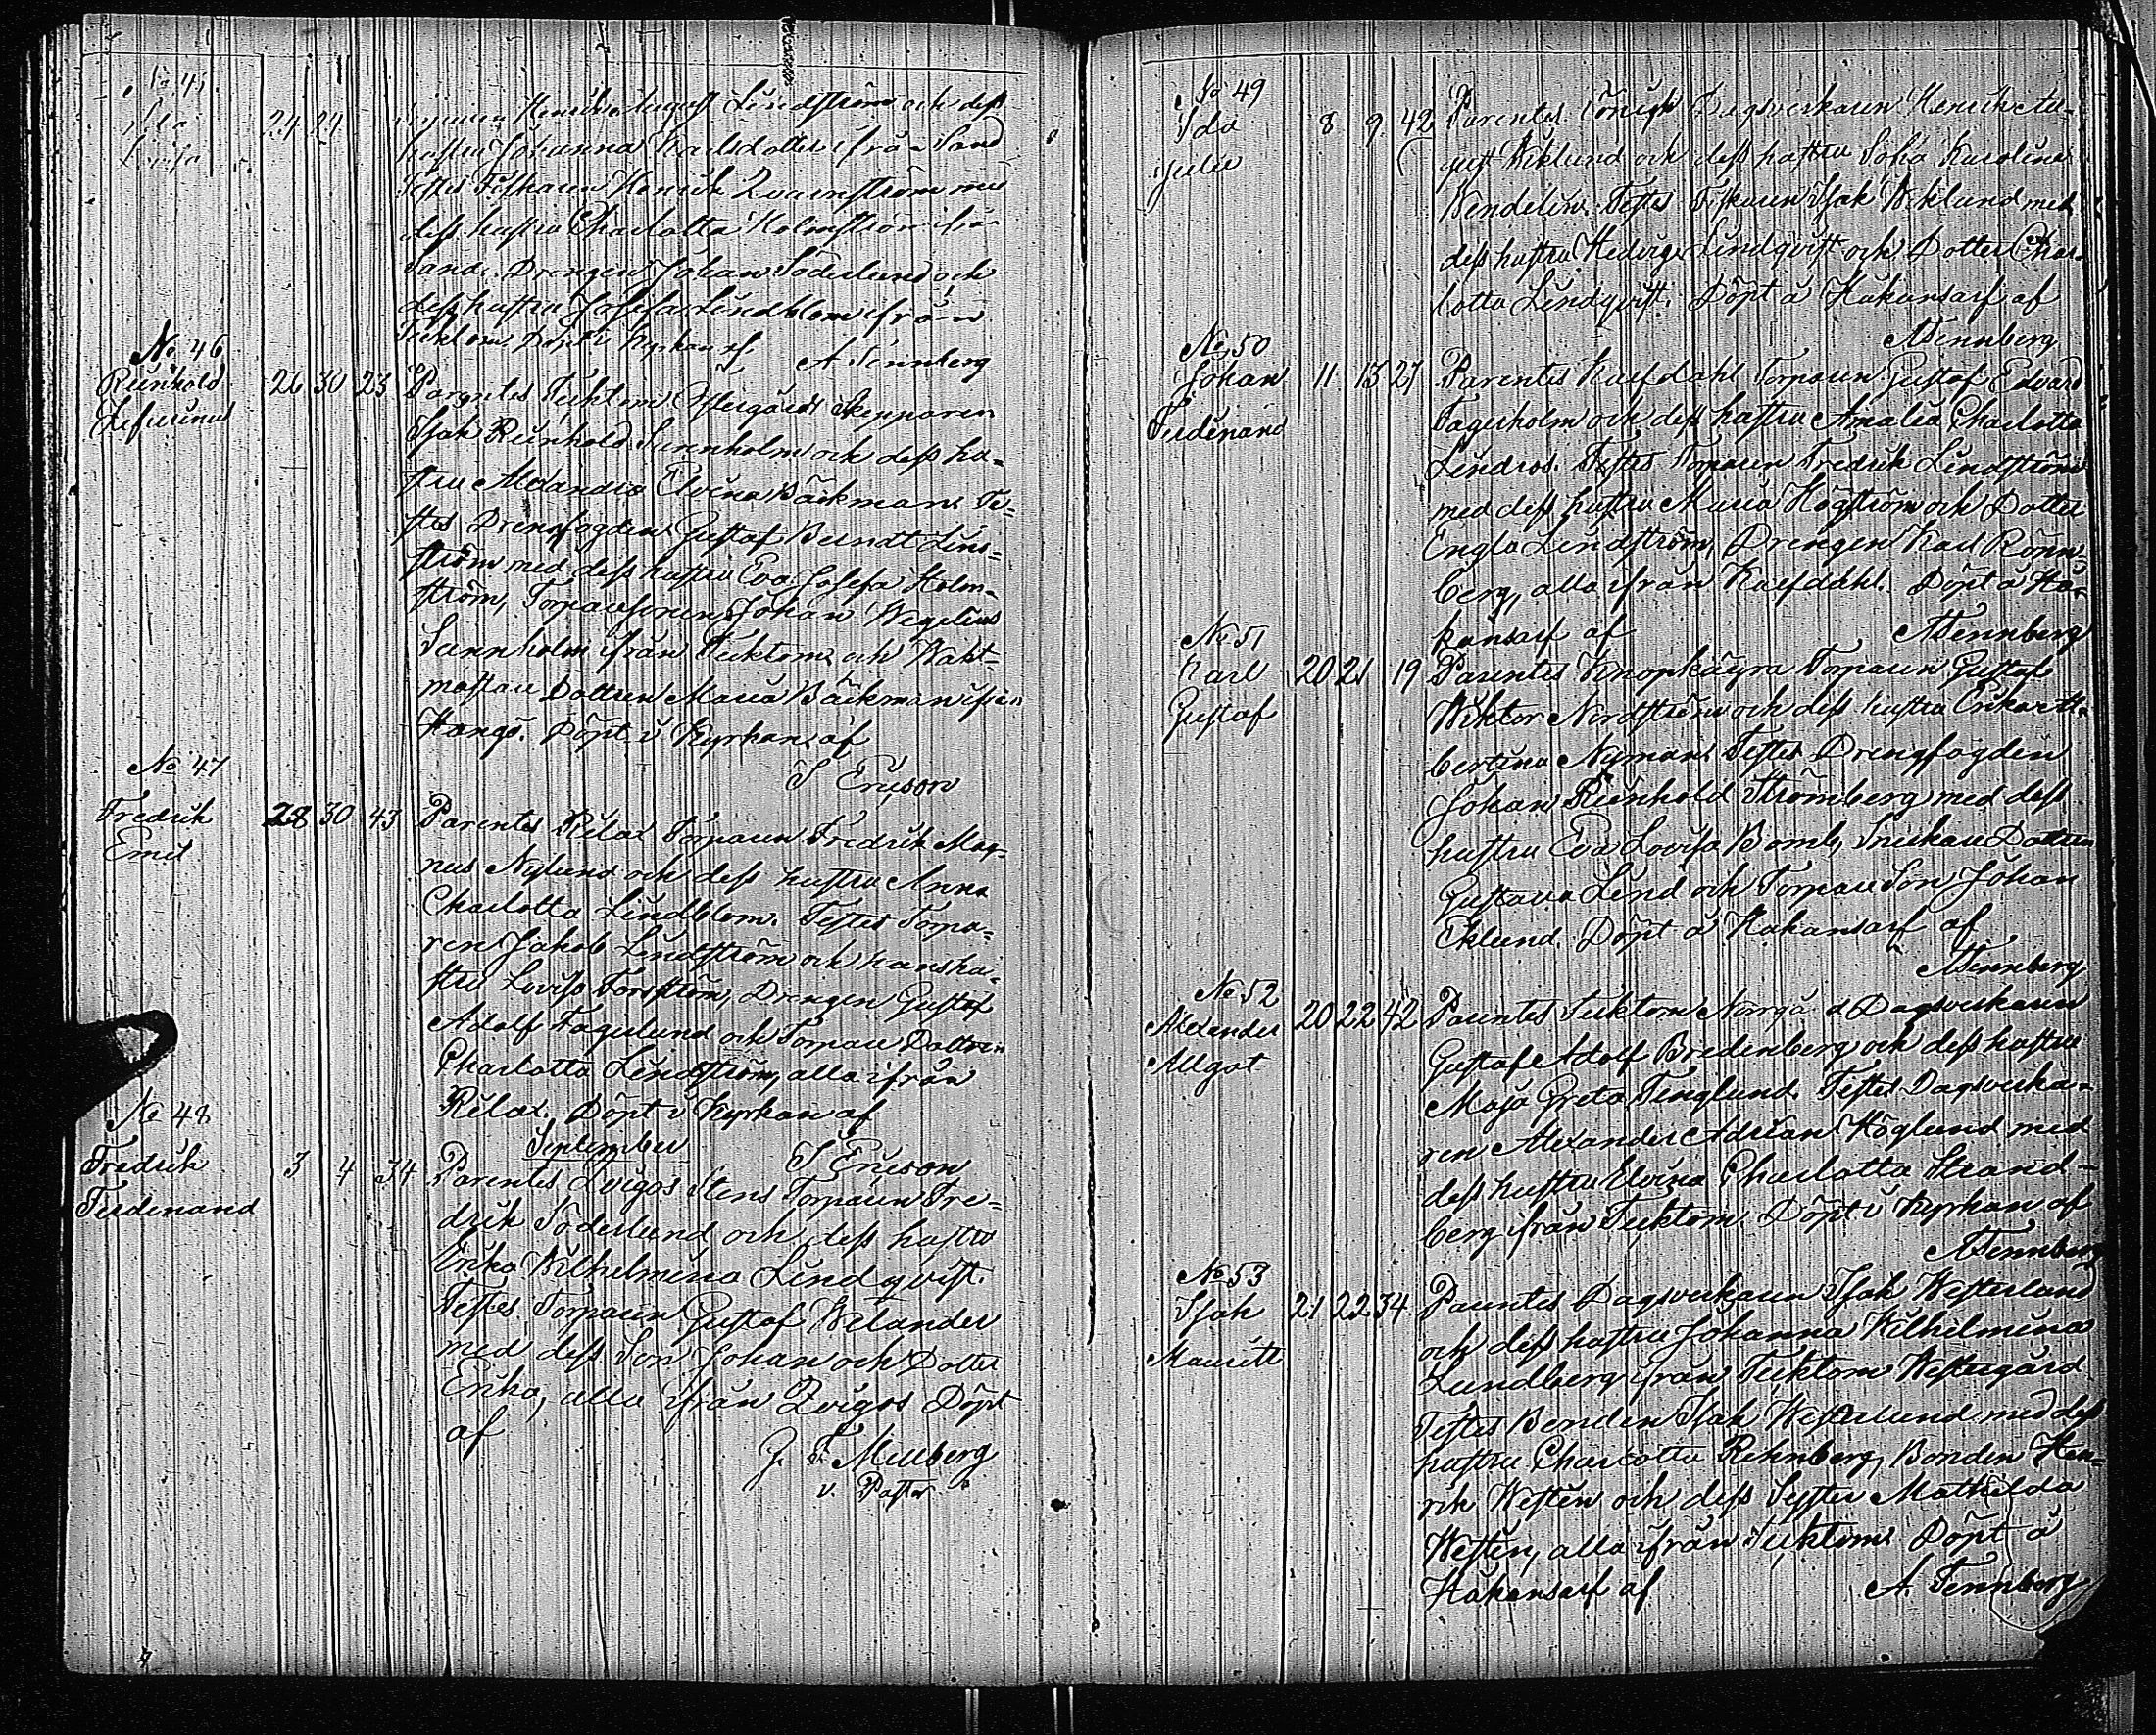 No 45
Ida
Lovisa
24 24
Henrik August Lindström och dess
hustru Johanna Karlsdotter ifrån Sand
Testes Fiskaren Henrik Qvarnström med
dess hustru Charlotta Holmström ifrån
Sand. Drengen Johan Söderlund och
dess hustru Josefa Lindblom ifrån
Tecktom. Döpt i Kyrkan af
A Tennberg
No 46
Reinhold
Zefurinus
26 30 23
Parentes Tecktom Östergård Skepparen
Isak Reinhold Sannholm och dess hu-
stru Alexandra Elvina Bäckman. Te-
stes Drengfogden Gustaf Berndt Lind-
ström med dess hustru Eva Josefa Holm-
ström, Torparesonen Johan Wegelius
Sannholm ifrån Tecktom och Wakt-
mästare Dottren Maria Bäckman ifrån
Hangö. Döpt i Kyrkan af
S Ericson
No 47
Fredrik
Emil
28 30 43
Parentes Rilax Torparen Fredrik Mag-
nus Nylund och dess hustru Anna
Charlotta Lindblom. Testes Torpa-
ren Jakob Lindström och hans hu-
stru Lovisa Forsström, Drengen Gustaf
Adolf Fagerlund och Torpare Dottren
Charlotta Lindström, alla ifrån
Rilax. Döpt i Kyrkan af
S Ericson
September
No 48
Fredrik
Ferdinand
3 4 34
Parentes Qvigos Stens Torparen Fre-
drik Söderlund och dess hustru
Erika Wilhelmina Lindqvist.
Testes Torparen Gustaf Welander
med dess Son Johan och Dotter
Erika, alla ifrån Qvigos Döpt
af
J. F. Mellberg
v. Pastor
No 49
Ida
Julia
8 9 42
Parentes Dagsverkaren Henrik Au-
gust Wiklund och dess hustru Sofia Karolina
Wendelin. Testes Fiskaren Isak Wiklund med
dess hustru Hedvig Lindqvist och Dotter Char-
lotta Lindqvist. Döpt å Håkansarf af
A Tennberg
No 50
Johan
Ferdinand
11 13 27
Parentes Kalfdahl Torparen Gustaf Edvard
Fagerholm och dess hustru Amalia Charlotta
Lindros. Testes Torparen Fredrik Lindström
med dess hustru Maria Högström och Dotter
Engla Lindström, Drengen Karl Rönn-
berg, alla ifrån Kalfdahl. Döpt å Hå-
kansarf af
A Tennberg
No 51
Carl
Gustaf
20 21 19
Parentes Knopkägra Torparen Gustaf
Wiktor Nordström och dess hustru Erika Al-
bertina Nyman. Testes Drengfogden
Johan Reinhold Strömberg med dess
hustru Eva Lovisa Bomb, Snickare Dottren
Gustava Lind och Torpare Son Johan
Eklund. Döpt å Håkansarf af
A Tennberg
No 52
Alexander
Allgot
20 22 42
Parentes Tecktom Norrgård Dagsverkaren
Gustaf Adolf Bredenberg och dess hustru
Maja Greta Tenglund. Testes Dagsverka-
ren Alexander Adrian Höglund med
dess hustru Elvina Charlotta Strand-
berg ifrån Tecktom. Döpt i Kyrkan af
A Tennberg
No 53
Isak
Mauritz
21 22 34
Parentes Dagsverkaren Isak Westerlund
och dess hustru Johanna Wilhelmina
Lundberg ifrån Tecktom Westergård
Testes Bonden Isak Westerlund med dess
hustru Charlotta Rehnberg, Bonden Hen-
rik Westén och dess Syster Mathilda
Westén, alla ifrån Tecktom. Döpt å
Håkansarf af
A. Tennberg